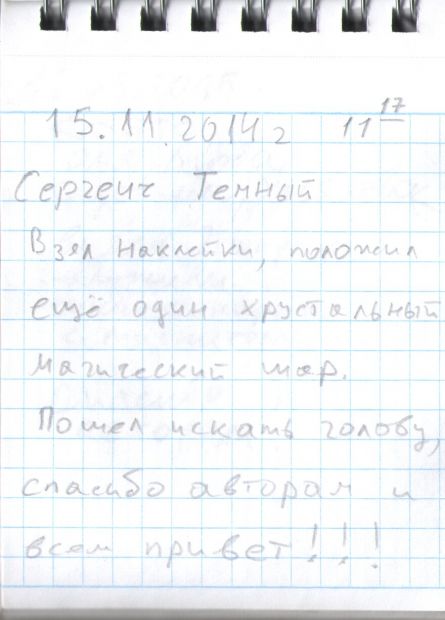 15.11.2014г 11 17
Сергеич Темный
Взял наклейки, положил
ещё один хрустальный
магический шар.
Пошел искать голову,
спасибо авторам и
всем привет!!!